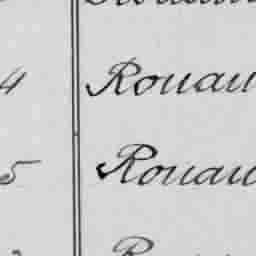 4 Rouau
5 Rouau